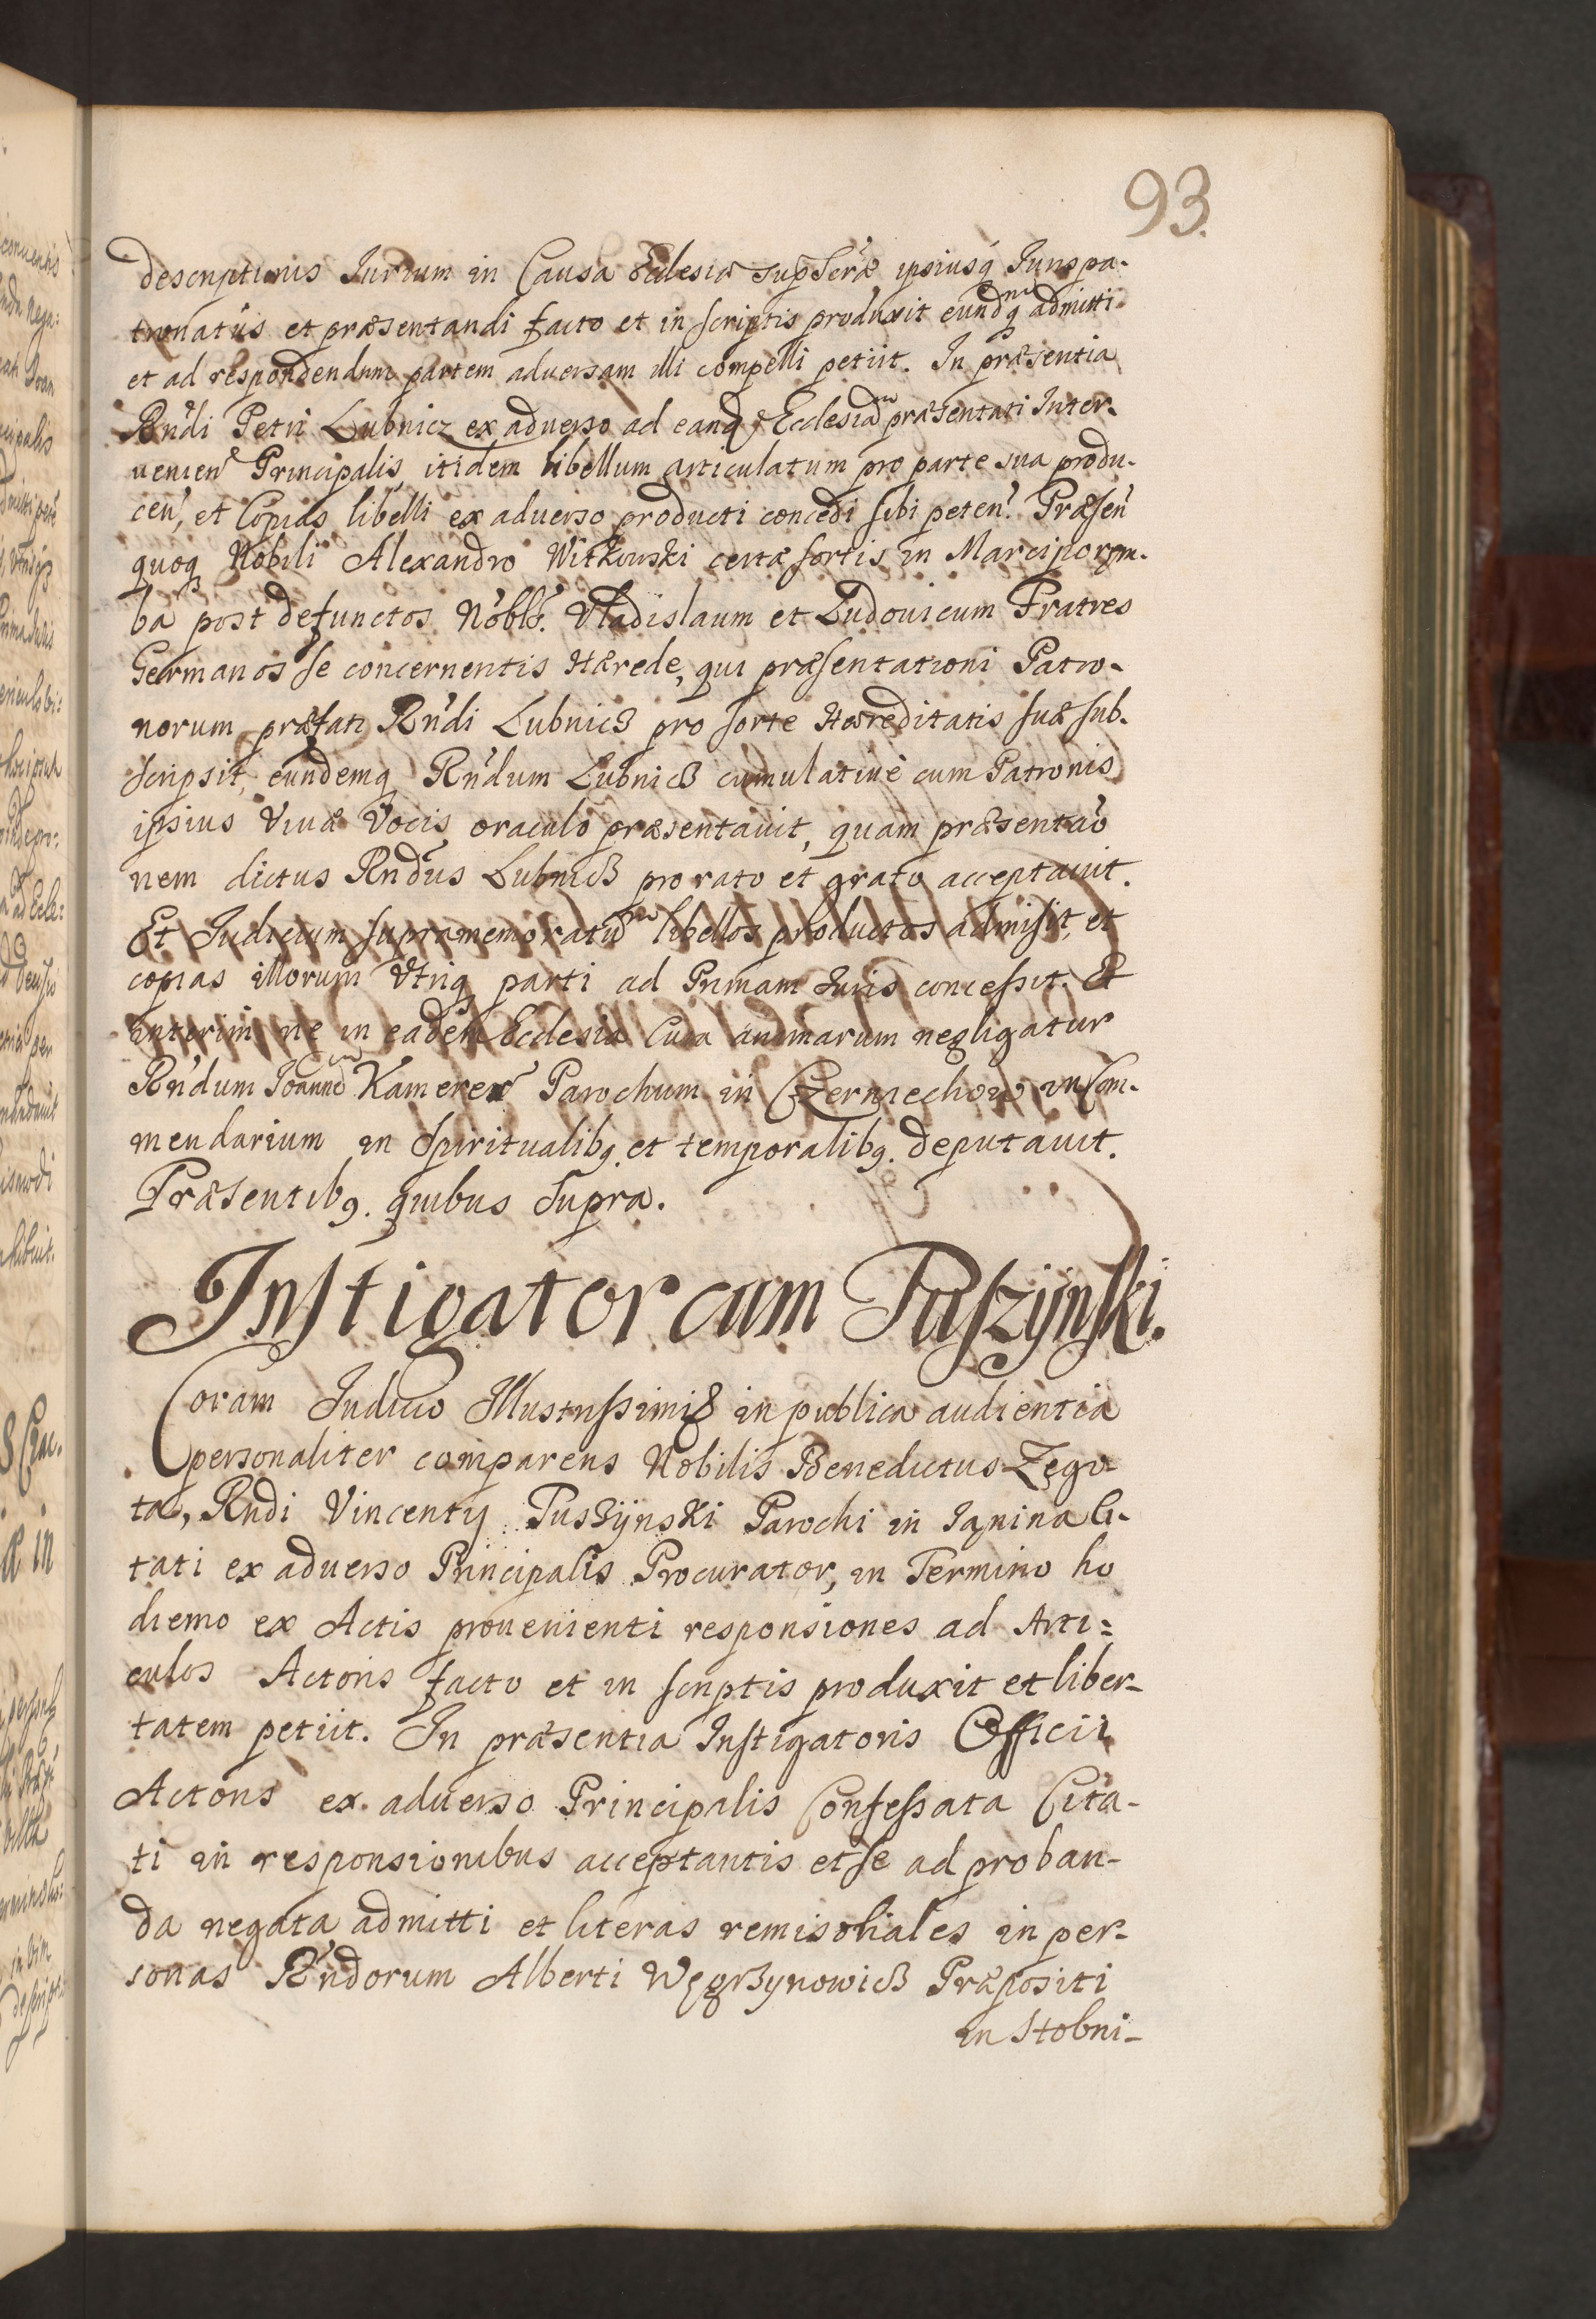 93.
descriptionis Jurium in Causa Ecclesiæ supscræ ipsiusq Jurispa-
tronatus et præsentandi facto et in scriptis produxit eundq admitti
et ad respondendum partem aduersam illi compelli petiit. In præsentia
Rndi Petri Lubnicz ex aduerso ad eand Ecclesia præsentati Inter-
uenien Principalis, itidem libellum articulatum pro parte sua produ-
cen, et Copias libelli ex aduerso producti concedi sibi peten. Præsen
quoq Nobili Alexandro Witkowski certæ sortis in Marciporęm-
ba post defunctos Nobls. Vladislaum et Ludouicum Fratres
Germanos se concernentis Hærede, qui præsentationi Patro-
norum præfati Rndi Lubnicz pro sorte Hæreditatis suæ sub-
scripsit, eundemq Rndum Lubnicz cumulatiuè cum Patronis
ipsius Viuæ Vocis oraculo præsentauit, quam præsentao
nem dictus Rndus Lubnicz pro rato et grato acceptauit.
Et Judicium supramemoratu libellos productos admisit, et
copias illorum Vtriq parti ad Primam Juris concessit. Et
interim ne in eadem Ecclesia Cura animarum negligatur
Rndum Joanne Kamerer Parochum in Czermiechow in Com-
mendarium in Spiritualibq. et temporalibq. deputauit.
Præsentibq. quibus supra.
Instigator cum Puszijnski.
Coram Judicio Illustrissimi in publica audientia
personaliter comparens Nobilis Benedictus Zego-
ta, Rndi Vincentij Puszijnski Parochi in Janina Ci-
tati ex aduerso Principalis Procurator, in Termino ho
dierno ex Actis prouenienti responsiones ad Arti=
culos Actoris facto et in scriptis produxit et liber-
tatem petiit. In præsentia Instigatoris Officii
Actoris ex aduerso Principalis Confessata Cita-
ti in responsionibus acceptantis et se ad proban-
da negata admitti et literas remisoriales in per-
sonas Rndorum Alberti Węgrzynowicz Præpositi
in Stobni-